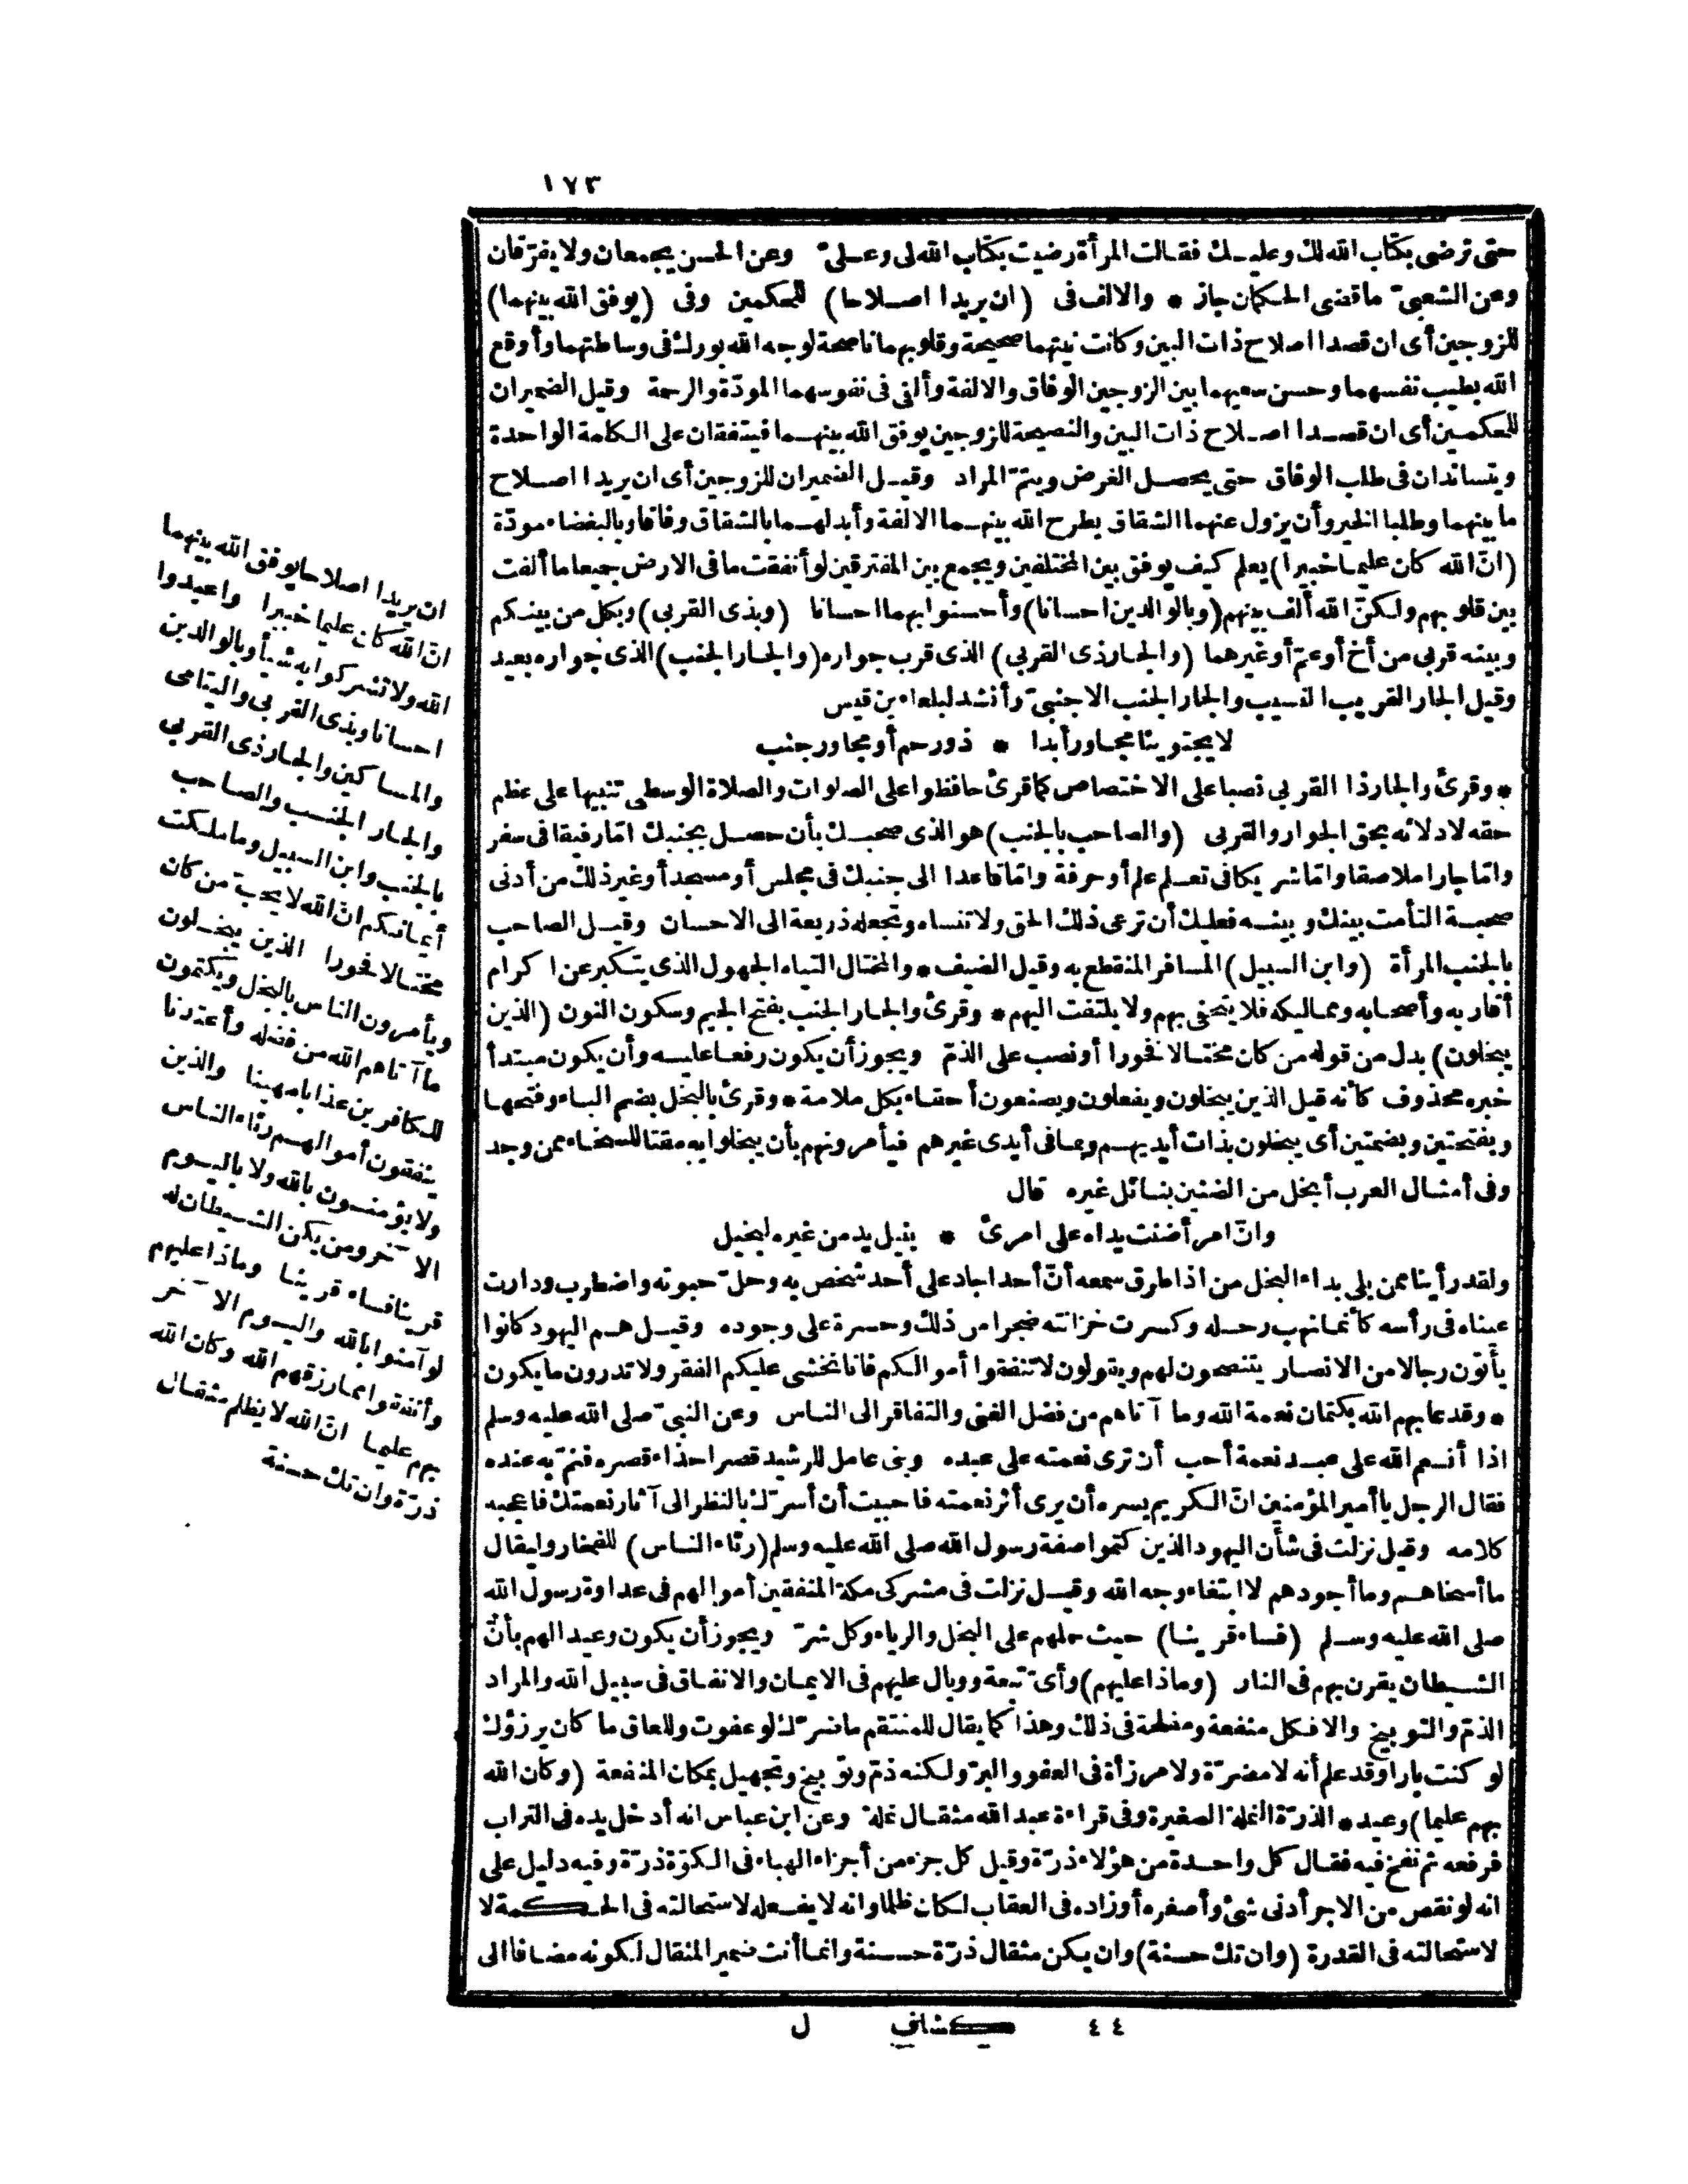 ١٧٣
حتى ترضى بكتاب الله لك وعليك فقالت المرأة رضيت بكتاب الله لى وعلىّ وعن الحسن يجمعان ولا يفرّقان
وعن الشعبىّ ما قضى الحكمان جاز * والالف فى (ان يريدا اصلاحا) للحكمين وفى (يوفق الله بينهما)
للزوجين أى ان قصدا اصلاح ذات البين وكانت نيتهما صحيحة وقلوبهما ناصحة لوجه الله بورك فى وساطتهما وأوقع
الله بطيب نفسهما وحسن سعيهما بين الزوجين الوفاق والالفة وألقى فى نفوسهما المودّة والرحمة وقيل الضميران
للحكمين أى ان قصدا اصلاح ذات البين والنصيحة للزوجين يوفق الله بينهما فيتفقان على الكلمة الواحدة
ويتساندان فى طلب الوفاق حتى يحصل الغرض ويتمّ المراد وقيل الضميران للزوجين أى ان يريدا اصلاح
ما بينهما وطلبا الخير وأن يزول عنهما الشقاق يطرح الله بينهما الالفة وأبدلهما بالشقاق وفاقا وبالبغضاء مودّة
(انّ الله كان عليما خبيرا) يعلم كيف يوفق بين المختلفين ويجمع بين المفترقين لو أنفقت ما فى الارض جميعا ما ألفت
بين قلوبهم ولكنّ الله ألف بينهم (وبالوالدين احسانا) وأحسنوا بهما احسانا (وبذى القربى) وبكل من بينكم
وبينه قربى من أخ أو عمّ أو غيرهما (والجار ذى القربى) الذى قرب جواره (والجار الجنب) الذى جواره بعيد
وقيل الجار القريب النسيب والجار الجنب الاجنبىّ وأنشد لبلعاء بن قيس
لا يجتوينا مجاور أبدا * ذو رحم أو مجاور جنب
* وقرئ والجار ذا القربى نصبا على الاختصاص كما قرئ حافظوا على الصلوات والصلاة الوسطى تنبيها على عظم
حقه لادلائه بحق الجوار والقربى (والصاحب بالجنب) هو الذى صحبك بأن حصل بجنبك امّا رفيقا فى سفر
وامّا جارا ملاصقا وامّا شريكا فى تعلم علم أو حرفة وامّا قاعدا الى جنبك فى مجلس أو مسجد أو غير ذلك من أدنى
صحبة التأمت بينك وبينه فعليك أن ترعى ذلك الحق ولا تنساه وتجعله ذريعة الى الاحسان وقيل الصاحب
بالجنب المرأة (وابن السبيل) المسافر المنقطع به وقيل الضيف * والمختال التياه الجهول الذى يتكبر عن اكرام
أقاربه وأصحابه ومماليكه فلا يتحفى بهم ولا يلتفت اليهم * وقرئ والجار الجنب بفتح الجيم وسكون النون (الذين
يبخلون) بدل من قوله من كان مختالا فخورا أو نصب على الذمّ ويجوز أن يكون رفعا عليه وأن يكون مبتدأ
خبره محذوف كأنه قيل الذين يبخلون ويفعلون ويصنعون أحقاء بكل ملامة * وقرئ بالبخل بضم الباء وفتحها
وبفتحتين وبضمتين أى يبخلون بذات أيديهم وبما فى أيدى غيرهم فيأمرونهم بأن يبخلوا به مقتا للسخاء ممن وجد
وفى أمثال العرب أبخل من الضنين بنائل غيره قال
وانّ امرأ ضنت يداه على امرئ * بنيل يد من غيره لبخيل
ولقد رأينا ممن بلى بداء البخل من اذا طرق سمعه أنّ أحدا جاد على أحد شخص به وحلّ حبوته واضطرب ودارت
عيناه فى رأسه كأنما نهب رحله وكسرت خزانته ضجرا من ذلك وحسرة على وجوده وقيل هم اليهود كانوا
يأتون رجالا من الانصار يتنصحون لهم ويقولون لا تنفقوا أموالكم فانا نخشى عليكم الفقر ولا تدرون ما يكون
* وقد عابهم الله بكتمان نعمة الله وما آتاهم من فضل الغنى والتفاقر الى الناس وعن النبىّ صلى الله عليه وسلم
اذا أنعم الله على عبد نعمة أحب أن ترى نعمته على عبده وبنى عامل للرشيد قصرا حذاء قصره فنمّ به عنده
فقال الرجل يا أمير المؤمنين انّ الكريم يسره أن يرى أثر نعمته فاحببت أن أسرّك بالنظر الى آثار نعمتك فاعجبه
كلامه وقيل نزلت فى شأن اليهود الذين كتموا صفة رسول الله صلى الله عليه وسلم (رئاء الناس) للفخار وليقال
ما أسخاهم وما أجودهم لا ابتغاء وجه الله وقيل نزلت فى مشركى مكة المنفقين أموالهم فى عداوة رسول الله
صلى الله عليه وسلم (فساء قرينا) حيث حملهم على البخل والرياء وكل شرّ ويجوز أن يكون وعيدا لهم بأنّ
الشيطان يقرن بهم فى النار (وماذا عليهم) وأىّ تبعة ووبال عليهم فى الايمان والانفاق فى سبيل الله والمراد
الذمّ والتوبيخ والا فكل منفعة ومفلحة فى ذلك وهذا كما يقال للمنتقم ما ضرّك لو عفوت وللعاق ما كان يرزؤك
لو كنت بارا وقد علم أنه لا مضرّة ولا مرزأة فى العفو والبرّ ولكنه ذمّ وتوبيخ وتجهيل بمكان المنفعة (وكان الله
بهم عليما) وعيد * الذرّة النملة الصغيرة وفى قراءة عبد الله مثقال نملة وعن ابن عباس انه أدخل يده فى التراب
فرفعه ثم نفخ فيه فقال كل واحدة من هؤلاء ذرّة وقيل كل جزء من أجزاء الهباء فى الكوّة ذرّة وفيه دليل على
انه لو نقص من الاجر أدنى شئ وأصغره أو زاده فى العقاب لكان ظلما وانه لا يفعله لاستحالته فى الحكمة لا
لاستحالته فى القدرة (وان تك حسنة) وان يكن مثقال ذرّة حسنة وانما أنث ضمير المثقال لكونه مضافا الى
ان يريدا اصلاحا يوفق الله بينهما
انّ الله كان عليما خبيرا واعبدوا
الله ولا تشركوا به شيأ وبالوالدين
احسانا وبذى القربى واليتامى
والمساكين والجار ذى القربى
والجار الجنب والصاحب
بالجنب وابن السبيل وما ملكت
أيمانكم انّ الله لا يحبّ من كان
مختالا فخورا الذين يبخلون
ويأمرون الناس بالبخل ويكتمون
ما آتاهم الله من فضله وأعتدنا
للكافرين عذابا مهينا والذين
ينفقون أموالهم رئاء الناس
ولا يؤمنون بالله ولا باليوم
الآخر ومن يكن الشيطان له
قرينا فساء قرينا وماذا عليهم
لو آمنوا بالله واليوم الآخر
وأنفقوا مما رزقهم الله وكان الله
بهم عليما انّ الله لا يظلم مثقال
ذرّة وان تك حسنة
٤٤ كشاف ل